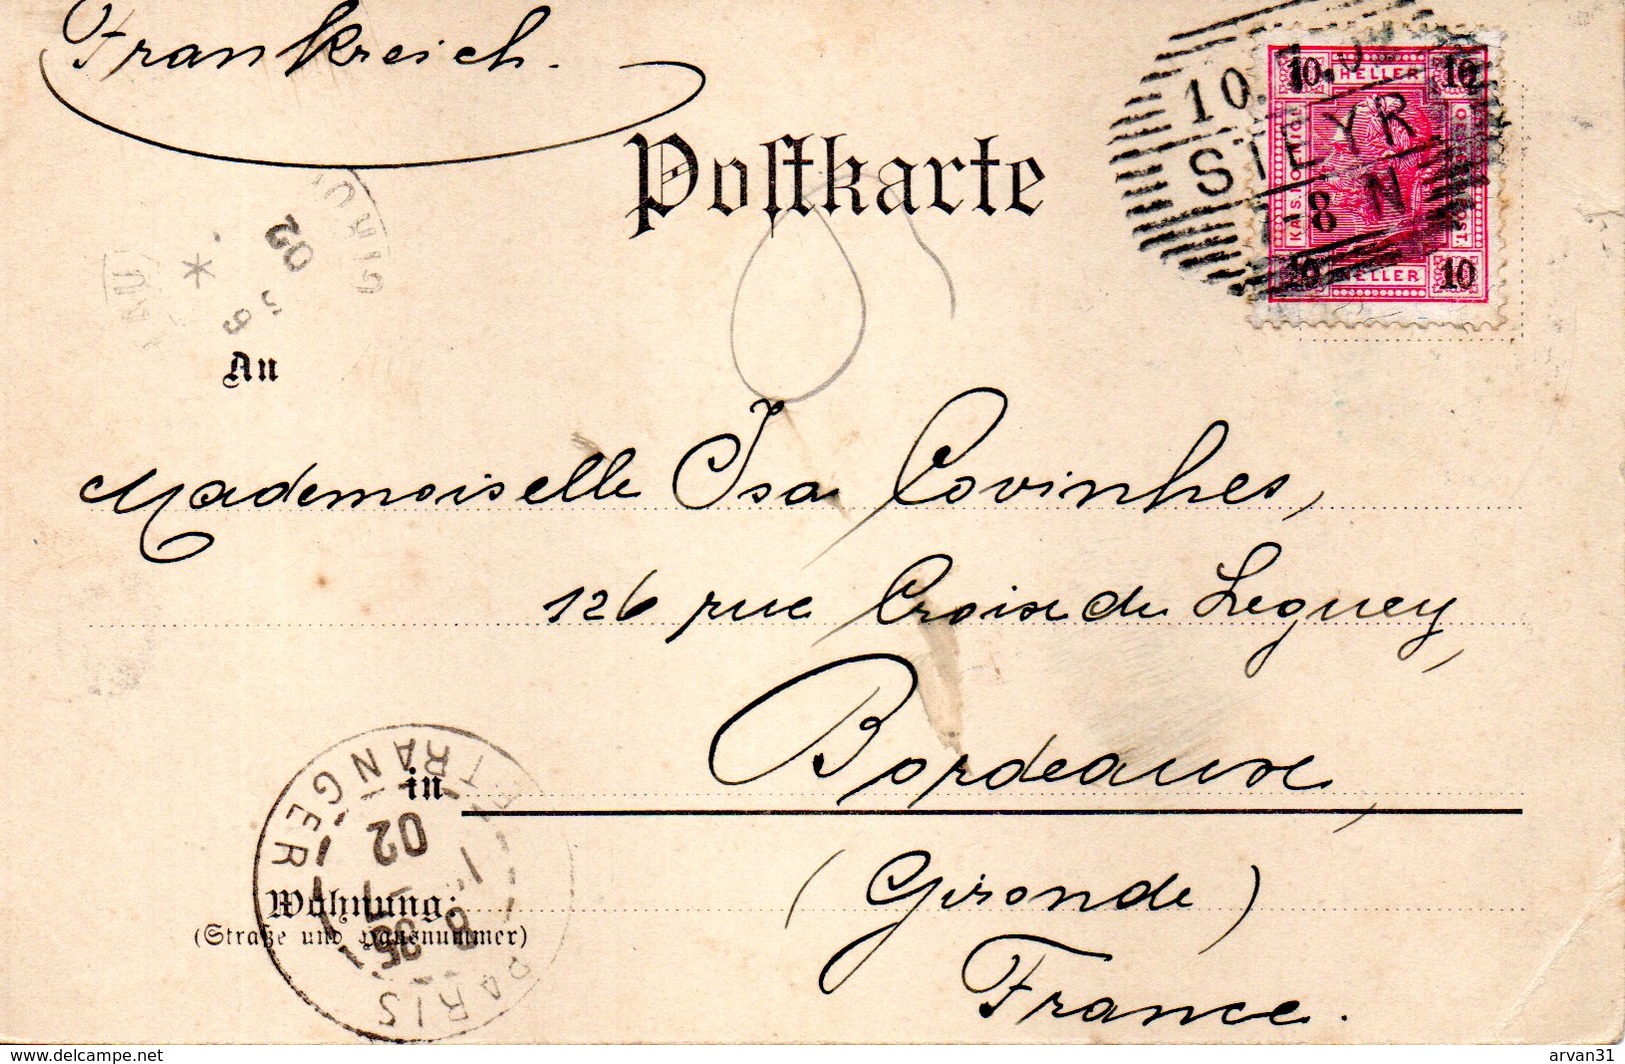 Frankreich.
Postkarte
10.
STEYR
8 N
10 HELLER 10
10 HELLER 10
GIRONDE
02
An
Mademoiselle Isa Covinhes,
126 rue Croix de Seguey,
in Bordeaux,
Wohnung:
(Straße und Hausnummer)
(Gironde)
France.
PARIS ETRANGER
02
www.delcampe.net
arvan31